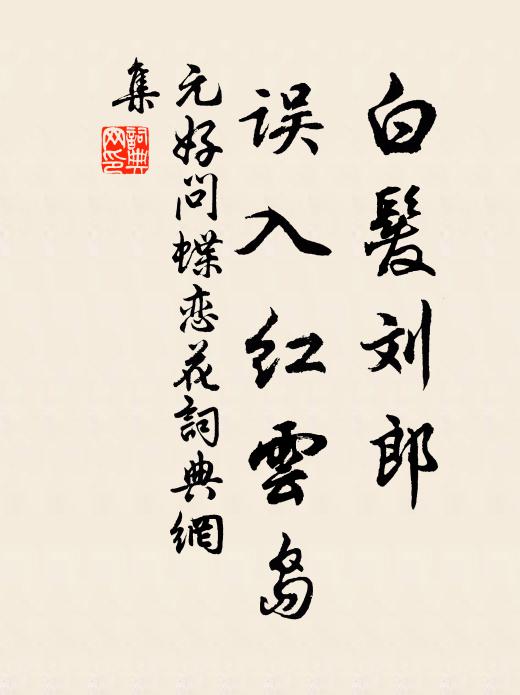 白髮刘郎
误入红雲岛
元好问蝶恋花詞典網
集
詞典
网印